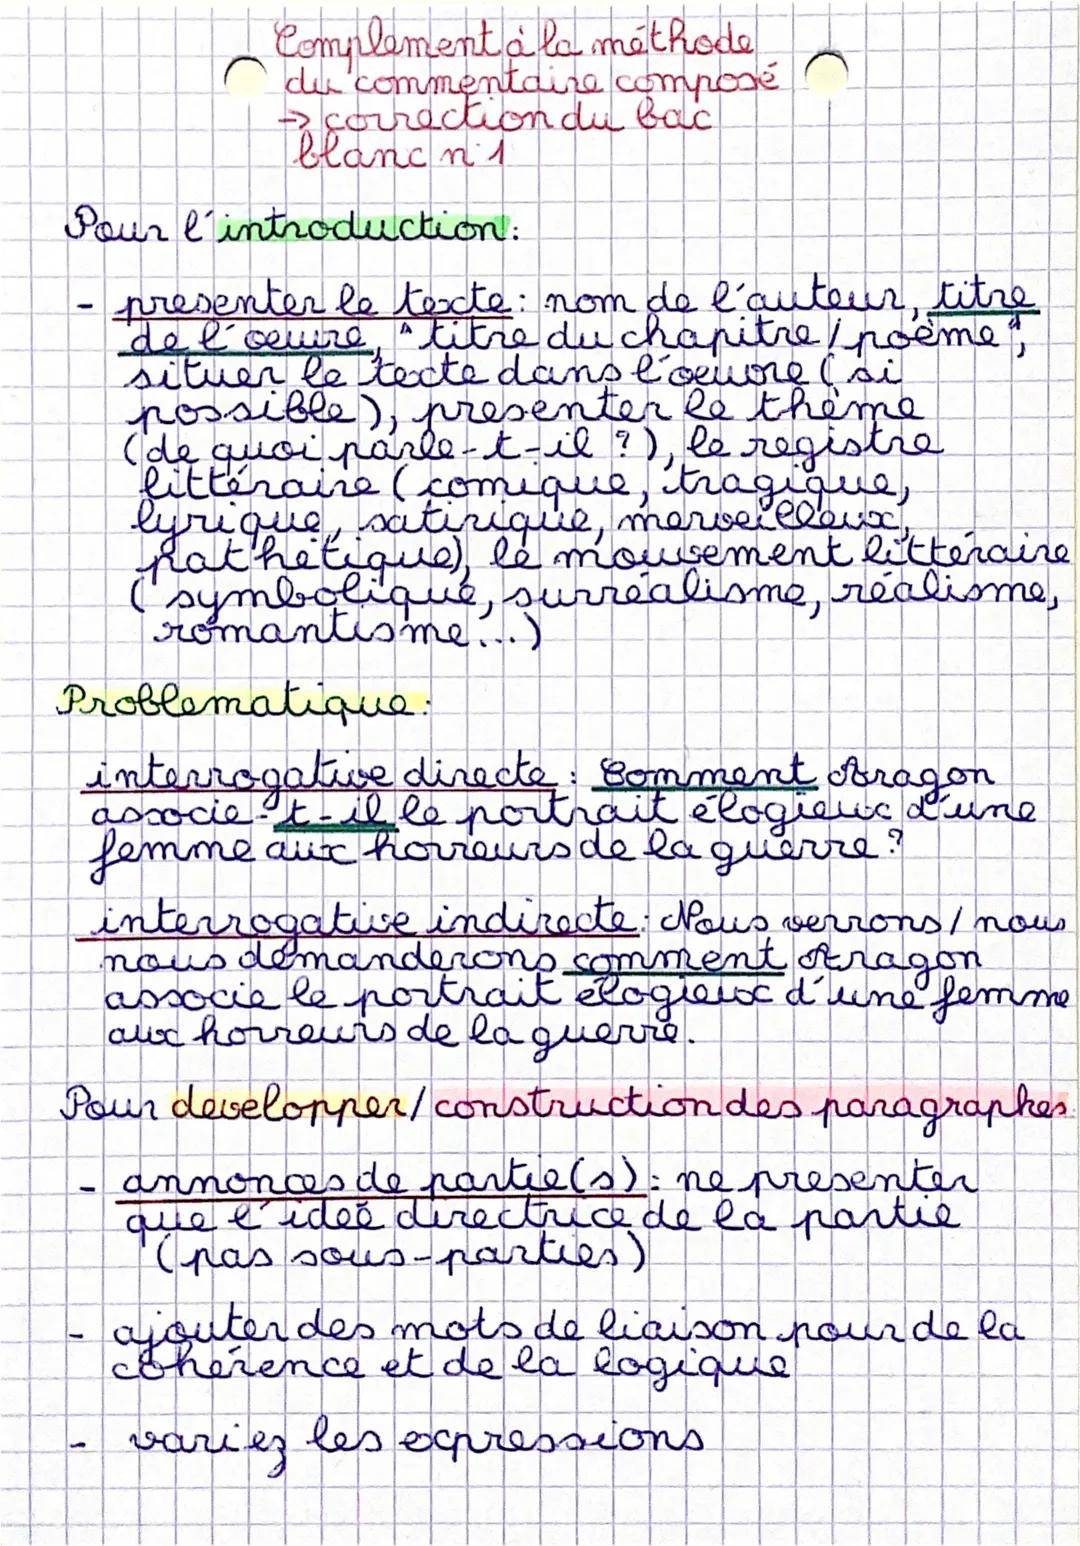 Complement à la méthode
du commentaire composé
→ correction du bac
blanc n°1
Pour l'introduction:
- presenter le texte: nom de l'auteur, titre
de l'oeuvre, "titre du chapitre / poème",
situer le texte dans l'oeuvre (si
possible), presenter le thème
(de quoi parle-t-il ?), le registre
littéraire (comique, tragique,
lyrique, satirique, merveilleux,
pathétique), le mouvement littéraire
(symbolique, surréalisme, réalisme,
romantisme...)
Problematique:
interrogative directe: Comment Aragon
associe-t-il le portrait élogieux d'une
femme aux horreurs de la guerre?
interrogative indirecte: Nous verrons / nous
nous demanderons comment Aragon
associe le portrait élogieux d'une femme
aux horreurs de la guerre.
Pour developper / construction des paragraphes
- annonces de partie(s): ne presenter
que l'idée directrice de la partie
(pas sous-parties)
- ajouter des mots de liaison pour de la
cohérence et de la logique
- variez les expressions